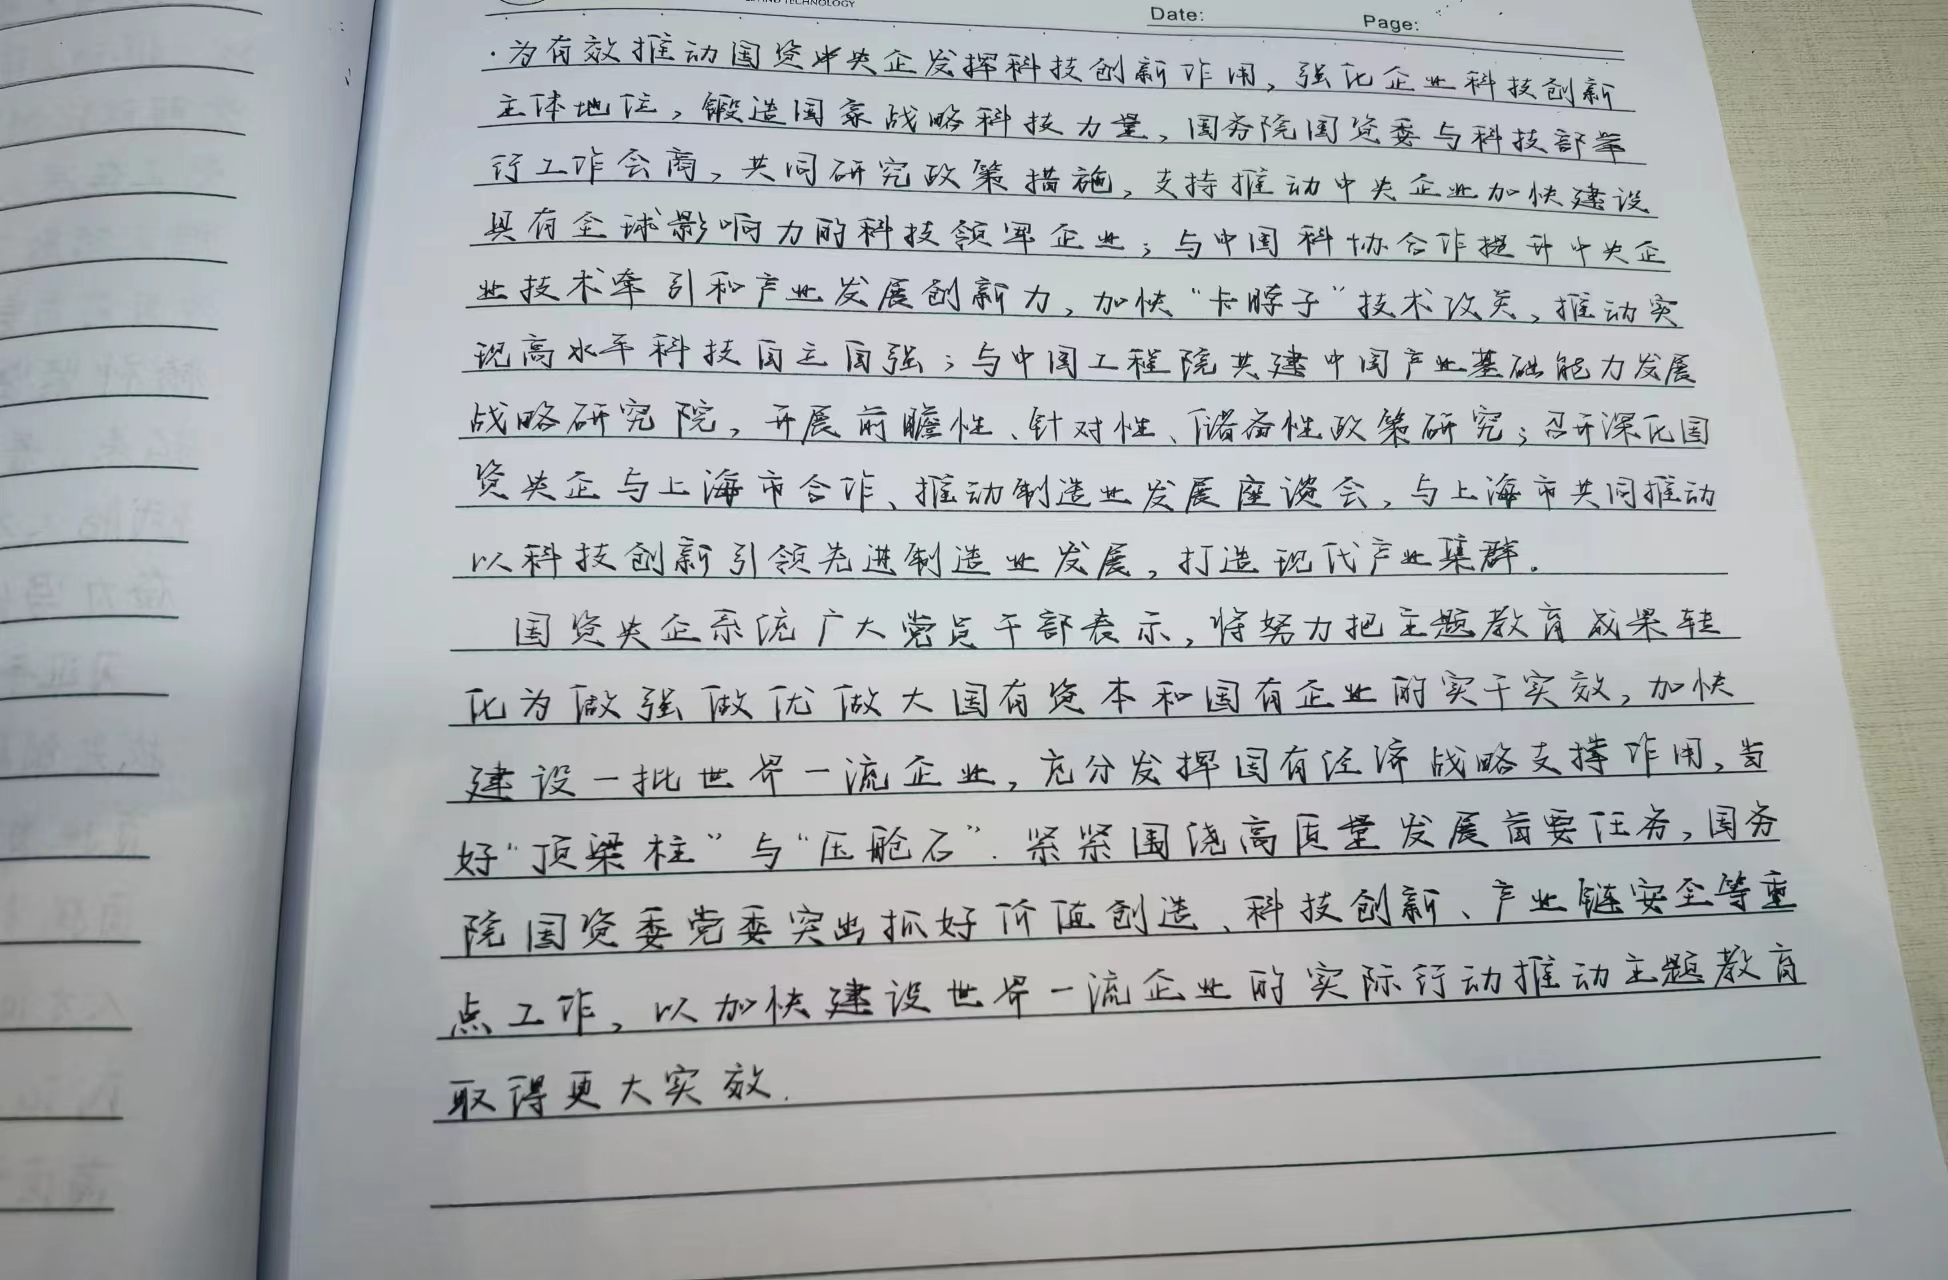 AND TECHNOLOGY
Date:
Page:
·为有效推动国资中央企发挥科技创新作用，强化企业科技创新
主体地位，锻造国家战略科技力量，国务院国资委与科技部举
行工作会商，共同研究政策措施，支持推动中央企业加快建设
具有全球影响力的科技领军企业；与中国科协合作提升中央企
业技术牵引和产业发展创新力，加快“卡脖子”技术攻关，推动实
现高水平科技自立自强；与中国工程院共建中国产业基础能力发展
战略研究院，开展前瞻性、针对性、储备性政策研究；召开深化国
资央企与上海市合作、推动制造业发展座谈会，与上海市共同推动
以科技创新引领先进制造业发展，打造现代产业集群.
国资央企系统广大党员干部表示，将努力把主题教育成果转
化为做强做优做大国有资本和国有企业的实干实效，加快
建设一批世界一流企业，充分发挥国有经济战略支撑作用，当
好“顶梁柱”与“压舱石”.紧紧围绕高质量发展首要任务，国务
院国资委党委突出抓好价值创造、科技创新、产业链安全等重
点工作，以加快建设世界一流企业的实际行动推动主题教育
取得更大实效.